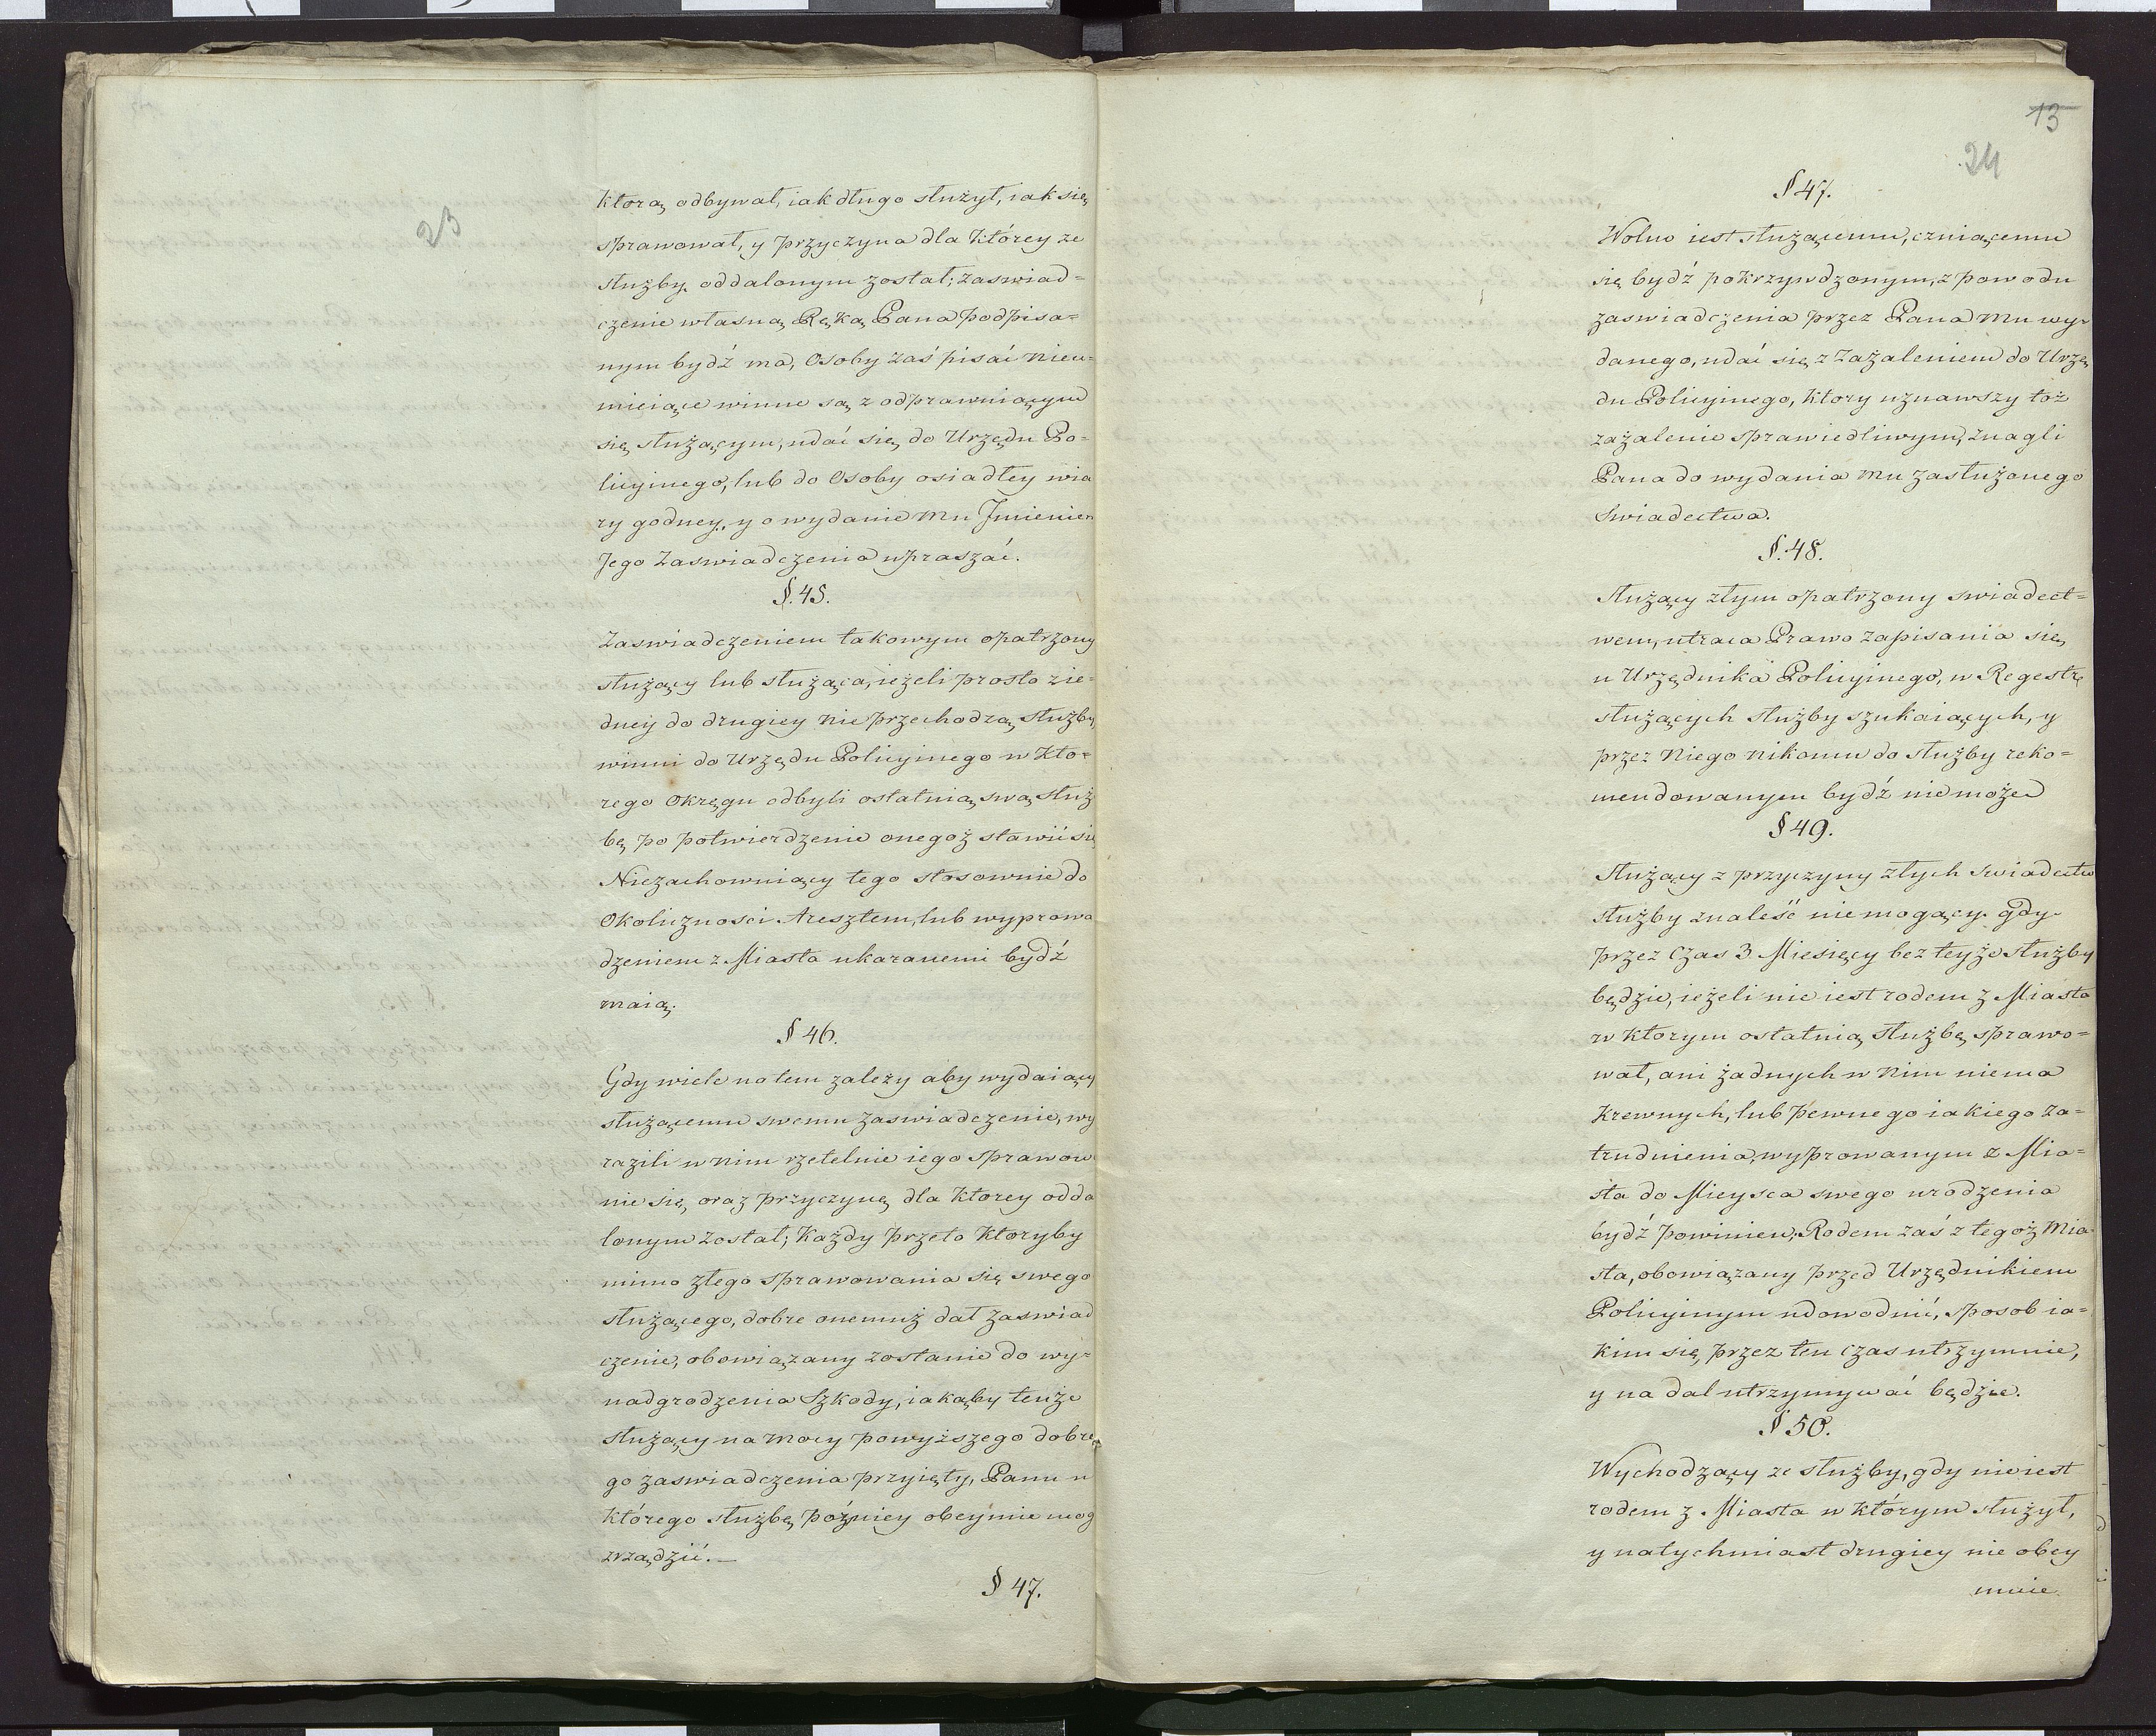 23
ktorą odbywał, iak długo służył, iak się
sprawował, y przyczyna dla którey ze
służby oddalonym został; zaswiad=
czenie własną Ręką Pana podpisa=
nym bydź ma, Osoby zaś pisać nieu=
mieiące winne są z odprawuiącym
się służącym, udać się do Urzędu Po=
licyinego, lub do Osoby osiadłey wia
ry godney, y o wydanie mu Jmieniem
Jego Zaswiadczenia upraszać.
§. 45.
Zaswiadczeniem takowym opatrzony
służący lub służąca, ieżeli prosto z ie=
dney do drugiey nie przechodzą służby,
winni do Urzędu Policyinego w kto=
rego Okręgu odbyli ostatnią swą służ
bę po potwierdzenie onegoż stawić się
Niezachowuiący tego stosownie do
Okoliczności Aresztem, lub wyprowa
dzeniem z Miasta ukaranemi bydź
maią.
§ 46.
Gdy wiele na tem zależy aby wydaiący
służącemu swemu zaswiadczenie, wy
razili w nim rzetelnie iego sprawowa
nie się, oraz przyczynę dla ktorey odda
lonym został; Każdy przeto ktoryby
mimo złego sprawowania się swego
służącego, dobre onemuż dał zaswiad
czenie, obowiązany zostanie do wy=
nadgrodzenia Szkody, iakąby tenże
służący na mocy powyższego dobre
go zaswiadczenia przyięty, Panu u
którego służbę poźniey obeymie mog
zrządzić.—
§ 47.
13
24
§ 47.
Wolno iest służącemu, czuiącemu
się bydź pokrzywdzonym, z powodu
zaswiadczenia przez Pana mu wy=
danego, udać się z Zażaleniem do Urzę
du Policyinego, ktory uznawszy toż
zażalenie sprawiedliwym, znagli
Pana do wydania mu zasłużonego
Swiadectwa.
§. 48.
Służący złym opatrzony swiadect=
wem, utraca Prawo zapisania się
u Urzędnika Policyinego, w Regestrę
służących służby szukaiących, y
przez Niego nikomu do służby reko=
mendowanym bydź niemoże
§ 49.
Służący z przyczyny złych Swiadectw
służby znaleść niemogący gdy
przez Czas 3 Miesięcy bez teyże służby
będzie, ieżeli nie iest rodem z Miasta
w ktorym ostatnią służbę sprawo=
wał, ani żadnych w nim niema
krewnych, lub pewnego iakiego za=
trudnienia, wyprowanym z Mia=
sta do Mieysca swego urodzenia
bydź powinien; Rodem zaś z tegoż Mia
sta, obowiązany przed Urzędnikiem
Policyinym udowodnić, sposob ia=
kim się przez ten czas utrzymuie,
y na dal utrzymywać będzie.
§ 50.
Wychodzący ze służby, gdy nie iest
rodem z Miasta w którym służył,
y natychmiast drugiey nie obey
muie